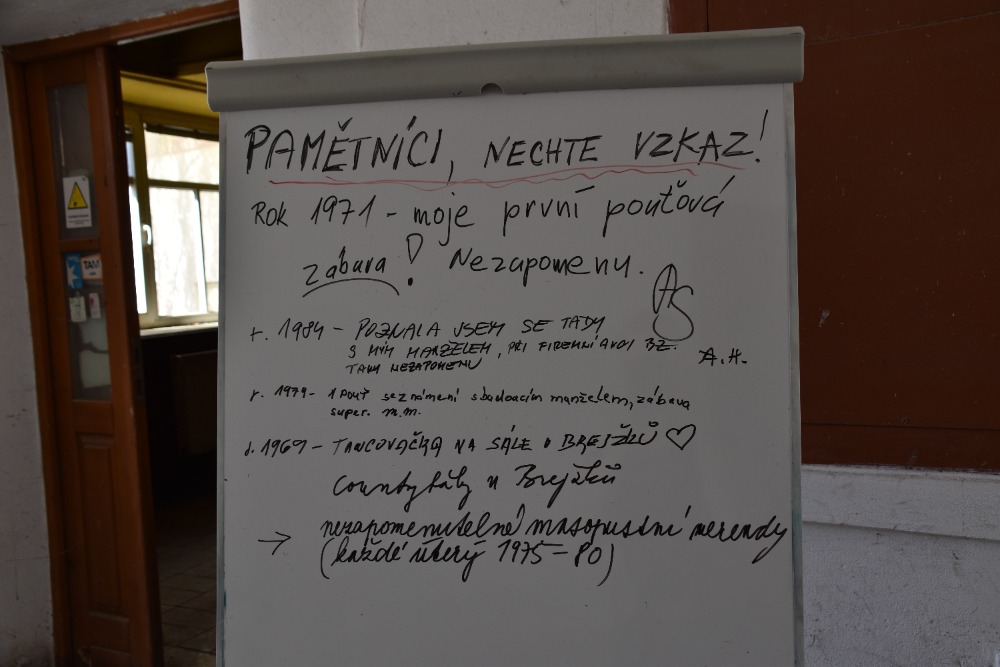 PAMĚTNÍCI, NECHTE VZKAZ!
Rok 1971 - moje první pouťová
zábava! Nezapomenu.
AS
r. 1984 - POZNALA JSEM SE TADY
S MÝM MANŽELEM, PŘI FIREMNÍ AVOJ BZ.
TAKY NEZAPOMENU
A.H.
r. 1979 - 1 POUŤ seznámení s budoucím manželem, zábava
super. m.m.
1969 - TANCOVAČKA NA SÁLE U BREJŽKŮ ♡
Countrybály u Brejžků
→ nezapomenutelné masopustní merendy
(každé úterý 1975-80)
TAM